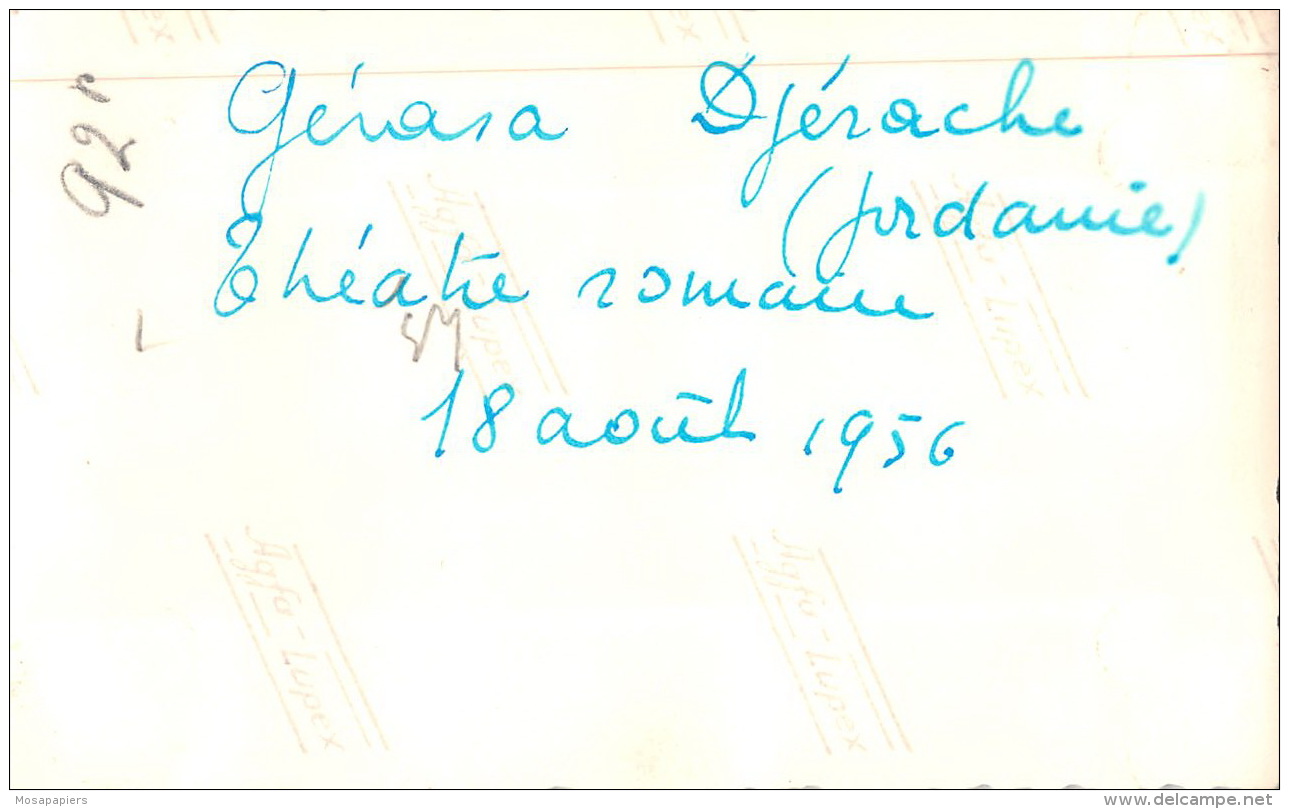 Gérasa Djérache
(Jordanie)
Théatre romain
18 août 1956
Agfa-Lupex
Agfa-Lupex
Agfa-Lupex
Agfa-Lupex
Mosapapiers
www.delcampe.net